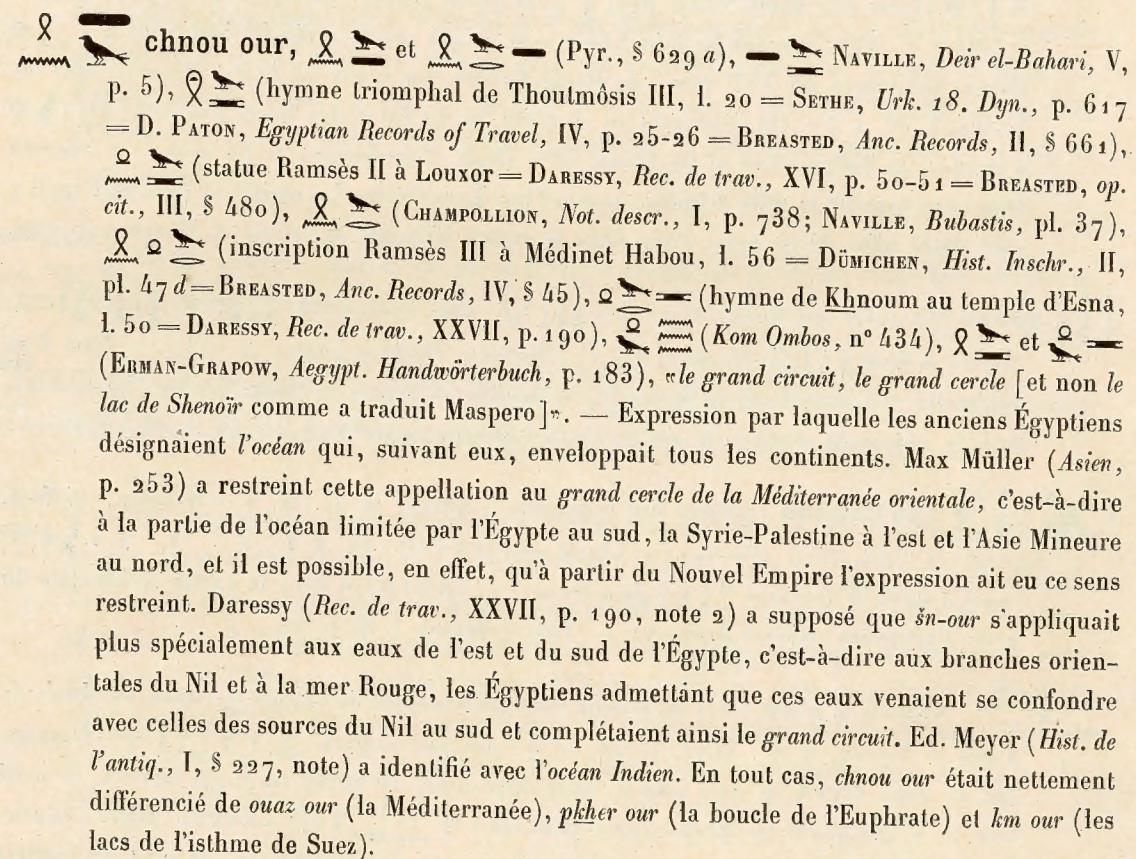 chnou our, et (Pyr., § 629 a), NAVILLE, Deir el-Bahari, V,
p. 5), (hymne triomphal de Thoutmôsis III, l. 20 = SETHE, Urk. 18. Dyn., p. 617
= D. PATON, Egyptian Records of Travel, IV, p. 25-26 = BREASTED, Anc. Records, II, § 661),
(statue Ramsès II à Louxor = DARESSY, Rec. de trav., XVI, p. 50-51 = BREASTED, op.
cit., III, § 480), (CHAMPOLLION, Not. descr., I, p. 738; NAVILLE, Bubastis, pl. 37),
(inscription Ramsès III à Médinet Habou, l. 56 = DÜMICHEN, Hist. Inschr., II,
pl. 47 d = BREASTED, Anc. Records, IV, § 45), (hymne de Khnoum au temple d'Esna,
l. 50 = DARESSY, Rec. de trav., XXVII, p. 190), (Kom Ombos, n° 434), et
(ERMAN-GRAPOW, Aegypt. Handwörterbuch, p. 183), «le grand circuit, le grand cercle [et non le
lac de Shenoïr comme a traduit Maspero]». — Expression par laquelle les anciens Égyptiens
désignaient l'océan qui, suivant eux, enveloppait tous les continents. Max Müller (Asien,
p. 253) a restreint cette appellation au grand cercle de la Méditerranée orientale, c'est-à-dire
à la partie de l'océan limitée par l'Égypte au sud, la Syrie-Palestine à l'est et l'Asie Mineure
au nord, et il est possible, en effet, qu'à partir du Nouvel Empire l'expression ait eu ce sens
restreint. Daressy (Rec. de trav., XXVII, p. 190, note 2) a supposé que šn-our s'appliquait
plus spécialement aux eaux de l'est et du sud de l'Égypte, c'est-à-dire aux branches orien-
tales du Nil et à la mer Rouge, les Égyptiens admettant que ces eaux venaient se confondre
avec celles des sources du Nil au sud et complétaient ainsi le grand circuit. Ed. Meyer (Hist. de
l'antiq., I, § 227, note) a identifié avec l'océan Indien. En tout cas, chnou our était nettement
différencié de ouaz our (la Méditerranée), pkher our (la boucle de l'Euphrate) et km our (les
lacs de l'isthme de Suez).